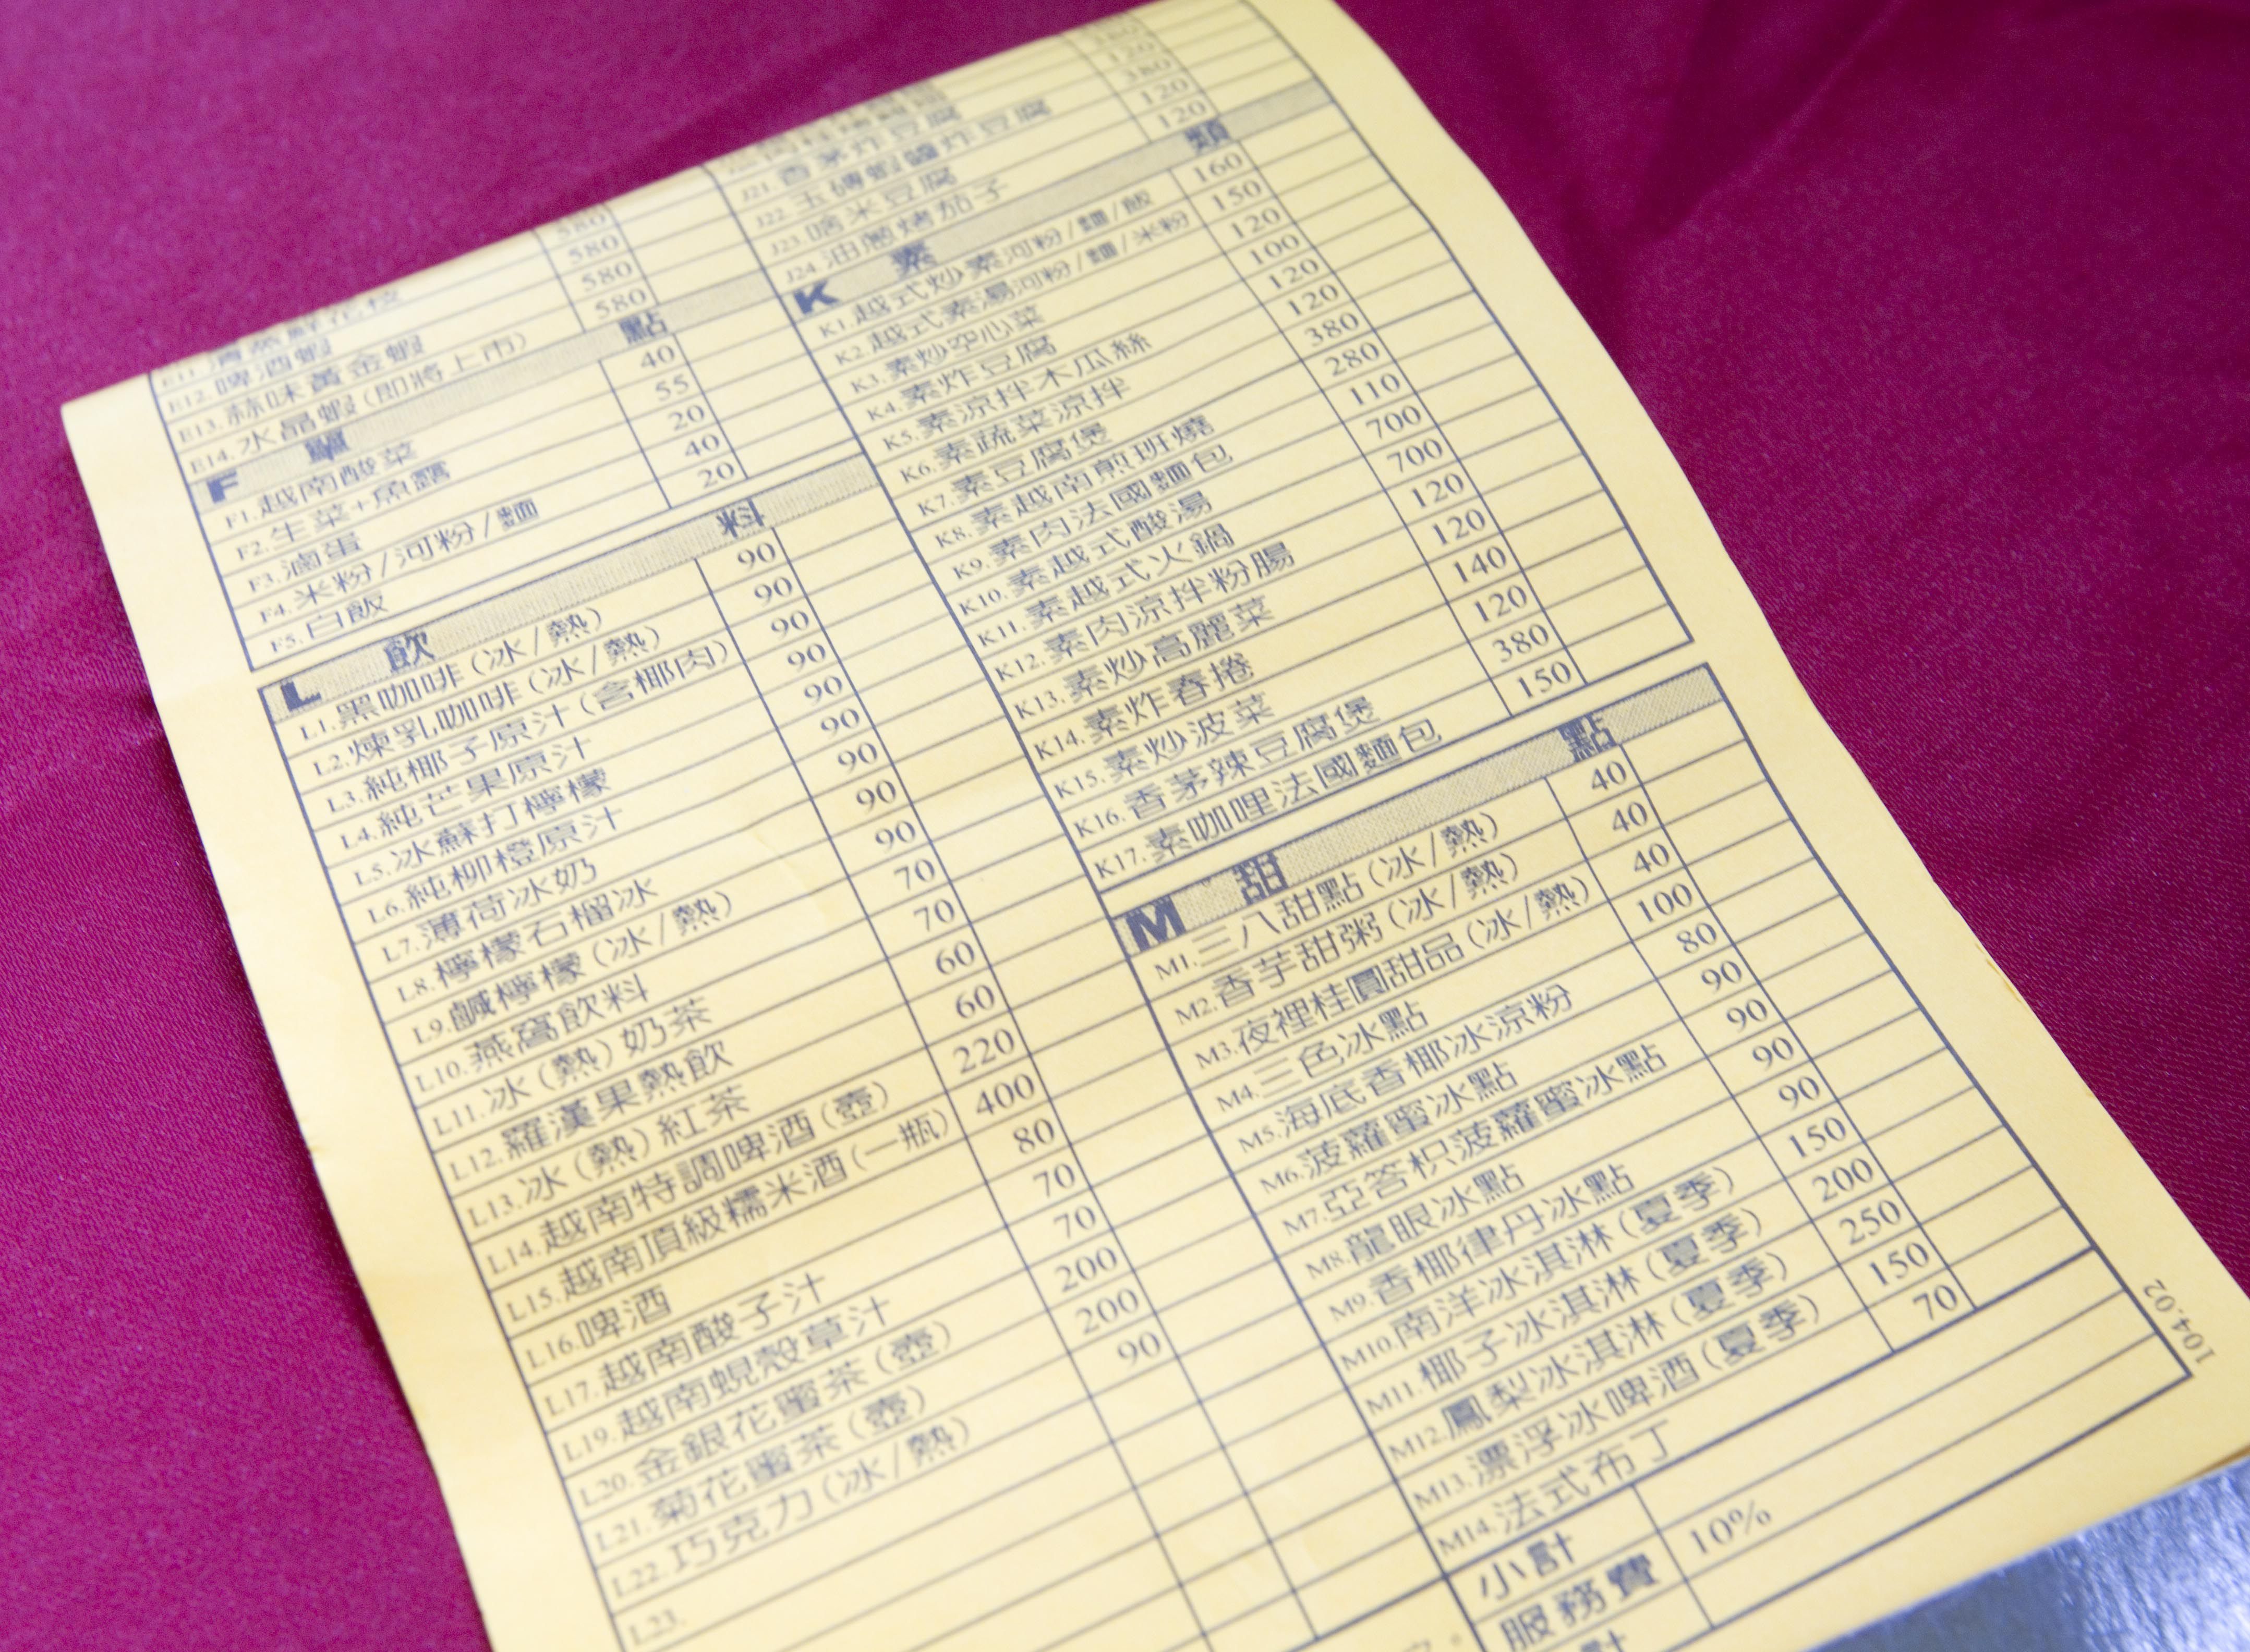 580
E12.啤酒蝦 580
E13.蒜味黃金蝦 580
E14.水晶蝦(即將上市) 580
F 單點
F1.越南酸菜 40
F2.生菜+魚露 55
F3.滷蛋 20
F4.米粉/河粉/麵 40
F5.白飯 20
L 飲料
L1.黑咖啡(冰/熱) 90
L2.煉乳咖啡(冰/熱) 90
L3.純椰子原汁(含椰肉) 90
L4.純芒果原汁 90
L5.冰蘇打檸檬 90
L6.純柳橙原汁 90
L7.薄荷冰奶 90
L8.檸檬石榴冰 90
L9.鹹檸檬(冰/熱) 90
L10.燕窩飲料 70
L11.冰(熱)奶茶 70
L12.羅漢果熱飲 60
L13.冰(熱)紅茶 60
L14.越南特調啤酒(壺) 220
L15.越南頂級糯米酒(一瓶) 400
L16.啤酒 80
L17.越南酸子汁 70
L19.越南蜆殼草汁 70
L20.金銀花蜜茶(壺) 200
L21.菊花蜜茶(壺) 200
L22.巧克力(冰/熱) 90
L23.
J21.香茅炸豆腐 120
J22.玉磚蝦醬炸豆腐 380
J23.米豆腐 120
J24.油蔥烤茄子 120
K 素類
K1.越式炒素河粉/麵/飯 160
K2.越式素湯河粉/麵/米粉 150
K3.素炒空心菜 120
K4.素炸豆腐 100
K5.素涼拌木瓜絲 120
K6.素蔬菜涼拌 120
K7.素豆腐煲 380
K8.素越南煎班燒 280
K9.素肉法國麵包 110
K10.素越式酸湯 700
K11.素越式火鍋 700
K12.素肉涼拌粉腸 120
K13.素炒高麗菜 120
K14.素炸春捲 140
K15.素炒波菜 120
K16.香茅辣豆腐煲 380
K17.素咖哩法國麵包 150
M 甜點
M1.三八甜點(冰/熱) 40
M2.香芋甜粥(冰/熱) 40
M3.夜裡桂圓甜品(冰/熱) 40
M4.三色冰點 100
M5.海底香椰冰涼粉 80
M6.菠蘿蜜冰點 90
M7.亞答枳菠蘿蜜冰點 90
M8.龍眼冰點 90
M9.香椰律丹冰點 90
M10.南洋冰淇淋(夏季) 150
M11.椰子冰淇淋(夏季) 200
M12.鳳梨冰淇淋(夏季) 250
M13.漂浮冰啤酒(夏季) 150
M14.法式布丁 70
小計
服務費 10%
104.02